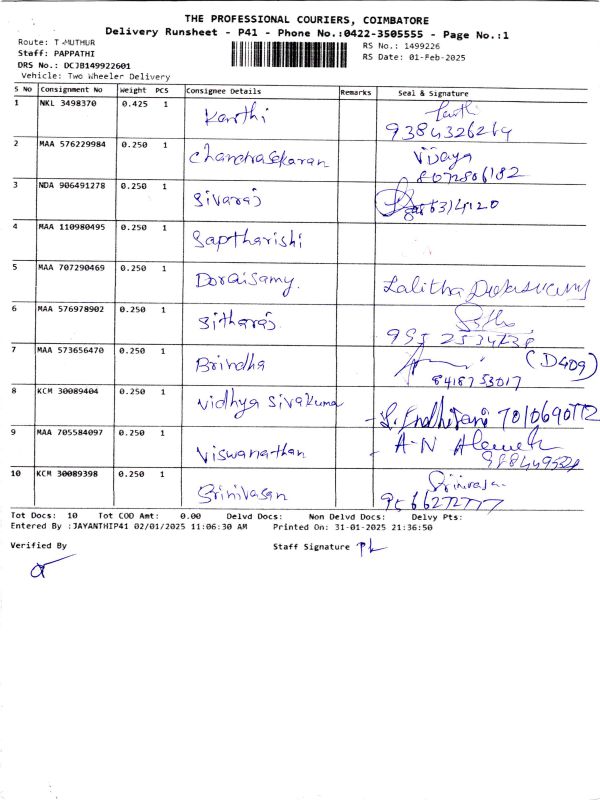 THE PROFESSIONAL COURIERS, COIMBATORE
Delivery Runsheet - P41 - Phone No.:0422-3505555 - Page No.:1
Route: T-MUTHUR
RS No.: 1499226
Staff: PAPPATHI
RS Date: 01-Feb-2025
DRS No.: DCJB149922601
Vehicle: Two Wheeler Delivery
S No Consignment No Weight PCS Consignee Details Remarks Seal & Signature
1 NKL 3498370 0.425 1 Karthi
9384326269
2 MAA 576229984 0.250 1 Chandrasekaran Vijaya
8072806182
3 NDA 906491278 0.250 1 Sivaraj
4 MAA 110980495 0.250 1 Saptharishi
5 MAA 707290469 0.250 1 Doraisamy. Lalitha
6 MAA 576978902 0.250 1 Sitharaj
7 MAA 573656470 0.250 1 Brindha (D409)
8418753017
8 KCM 30089404 0.250 1 Vidhya Sivakuma
9 MAA 705584097 0.250 1 Viswanathan A-N
10 KCM 30089398 0.250 1 Srinivasan Srinivasan
9566272777
Tot Docs: 10 Tot COD Amt: 0.00 Delvd Docs: Non Delvd Docs: Delvy Pts:
Entered By :JAYANTHIP41 02/01/2025 11:06:30 AM Printed On: 31-01-2025 21:36:50
Verified By Staff Signature